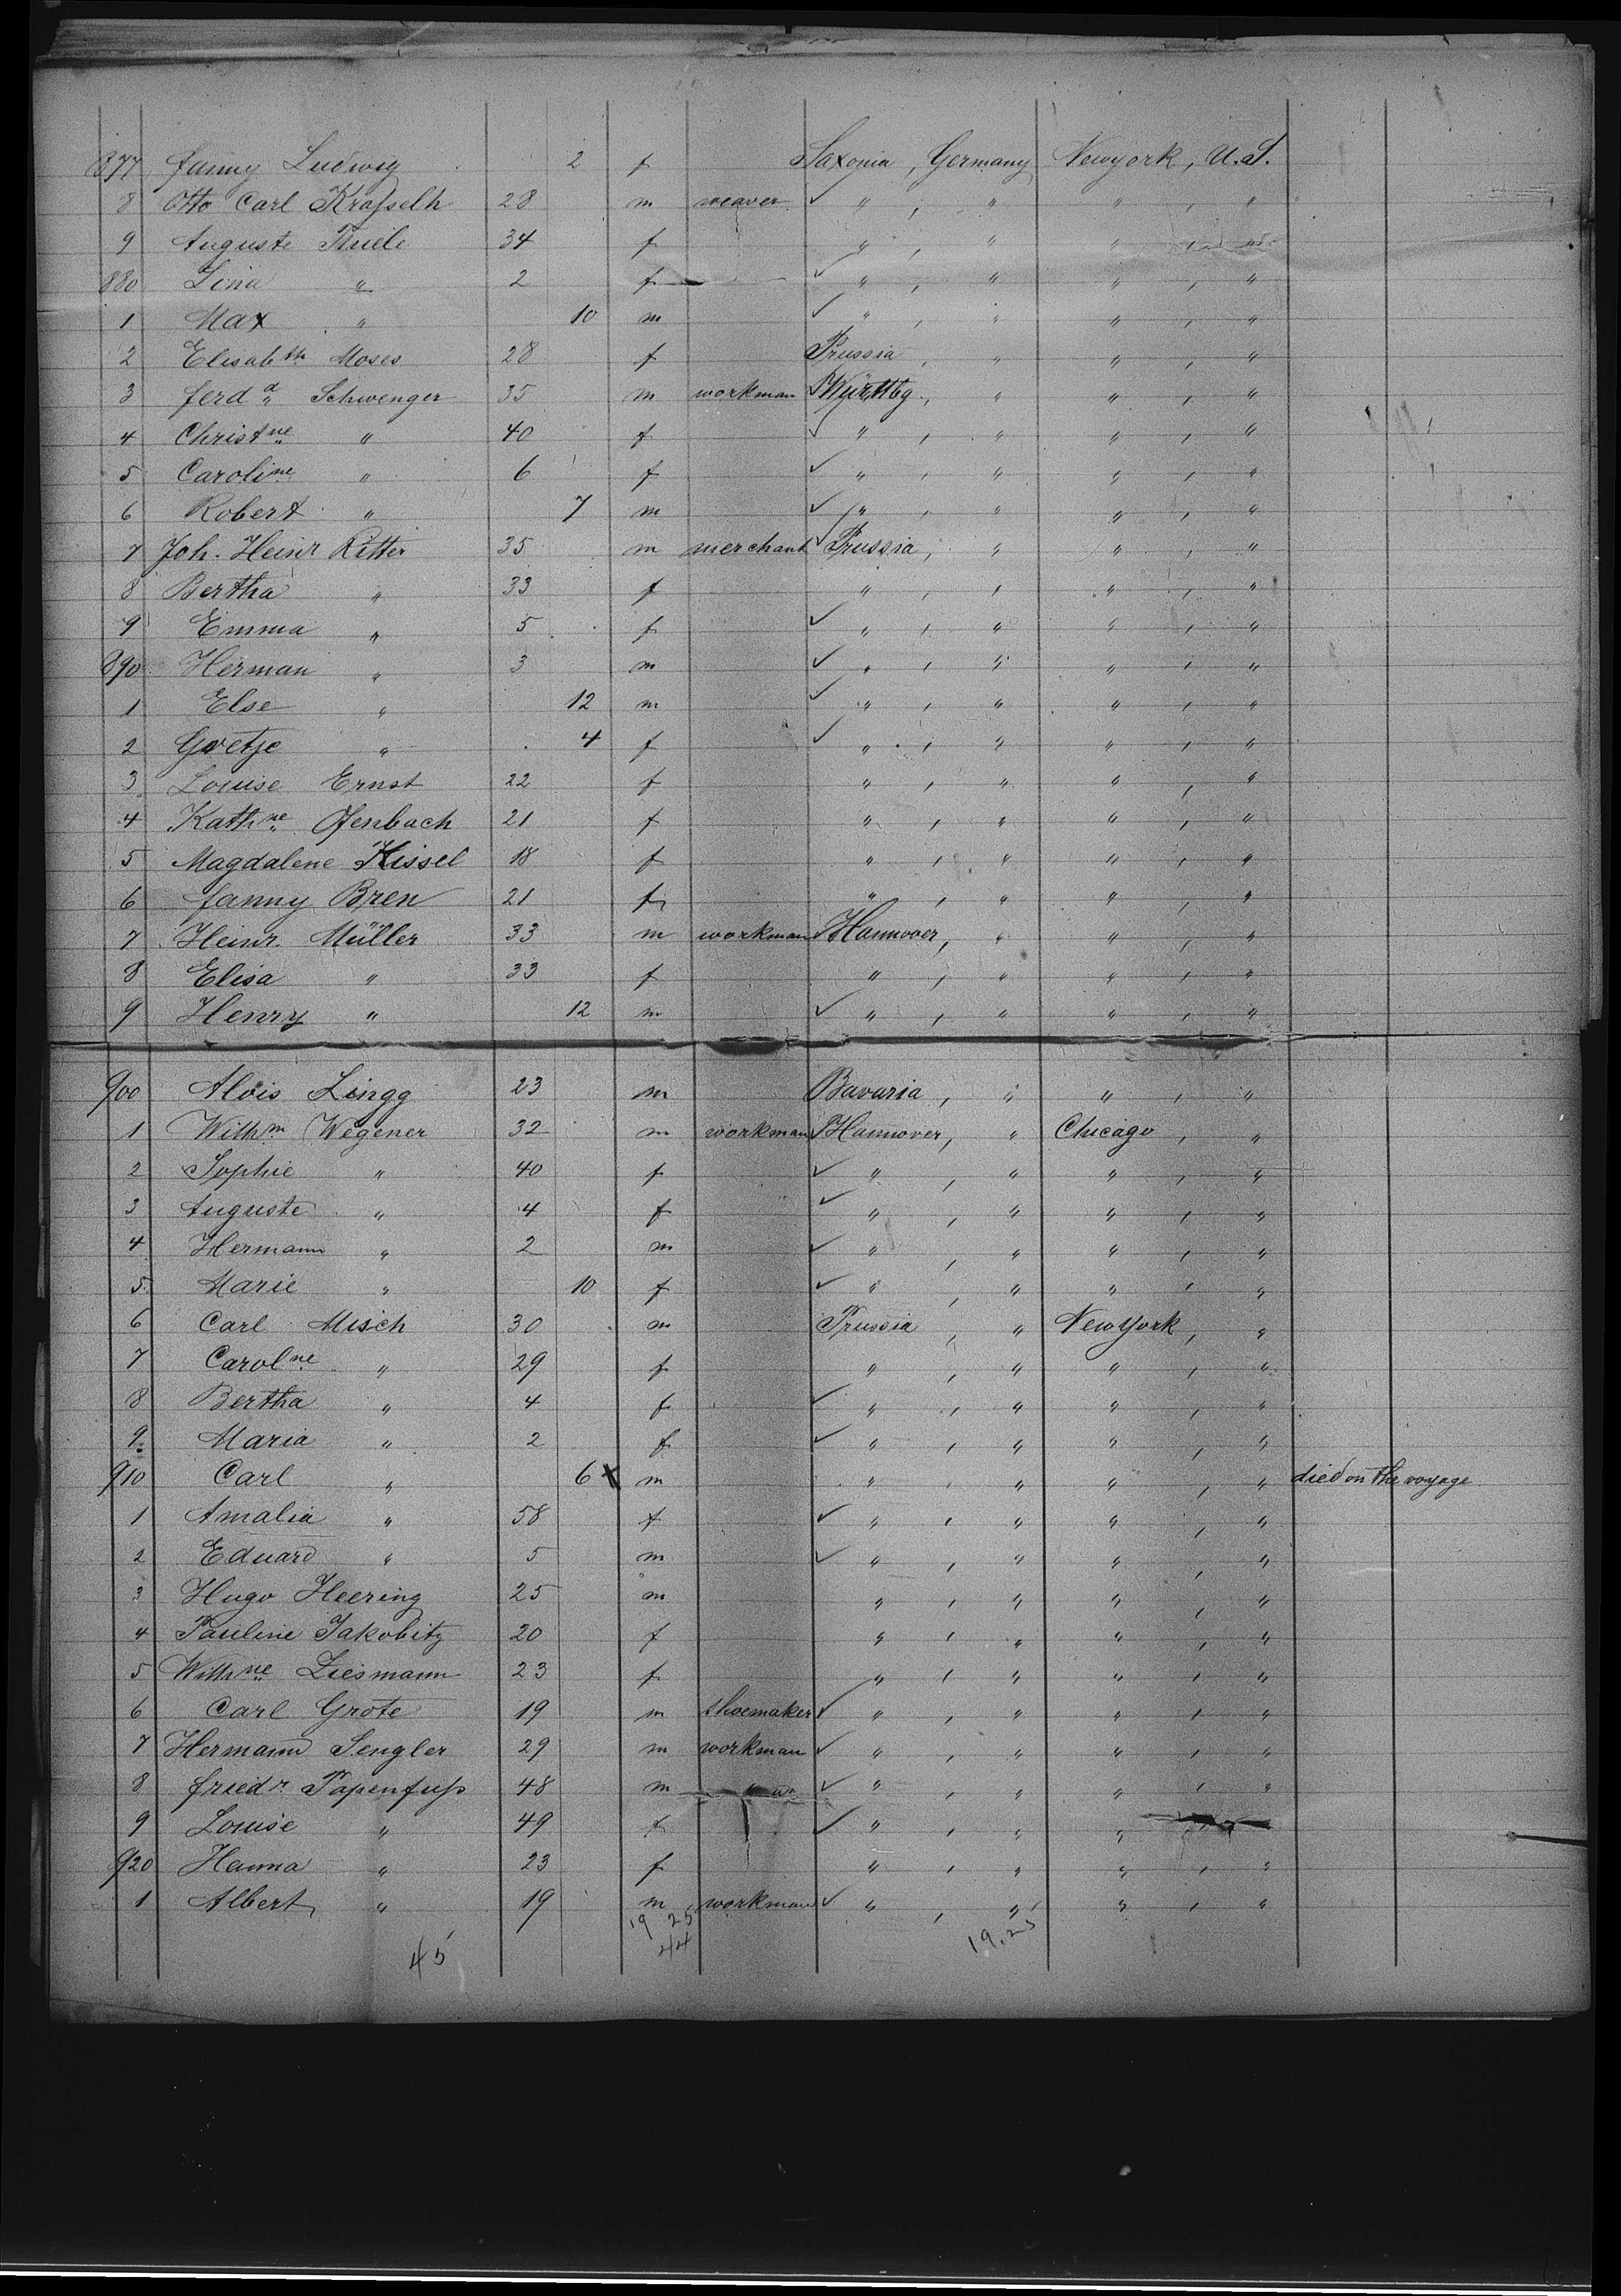 877 Fanny Ludwig 2 f Saxonia, Germany Newyork, U.S.
8 Otto Carl 28 m weaver ✓ " , " " , "
9 Auguste Thiele 34 f " , " " , "
880 Lina " 2 f ✓ " , " " , "
1 Max " 10 m ✓ " , " " , "
2 Elisabth Moses 28 f Prussia , " " , "
3 Ferdd Schwenger 35 m workman ✓ Württbg. , " " , "
4 Christne " 40 f ✓ " , " " , "
5 Caroline " 6 f ✓ " , " " , "
6 Robert " 7 m ✓ " , " " , "
7 Joh. Heinr Ritter 35 m merchant ✓ Prussia , " " , "
8 Bertha " 33 f " , " " , "
9 Emma " 5 f ✓ " , " " , "
890 Herman " 3 m ✓ " , " " , "
1 Else " 12 m ✓ " , " " , "
2 Goetje " 4 f ✓ " , " " , "
3 Louise Ernst 22 f " , " " , "
4 Kathne Ofenbach 21 f " , " " , "
5 Magdalene Kissel 18 f " , " " , "
6 Fanny Bren 21 f " , " " , "
7 Heinr. Müller 33 m workman ✓ Hannover, " " , "
8 Elisa " 33 f " , " " , "
9 Henry " 12 m ✓ " , " " , "
900 Alois Lingg 23 m Bavaria , " " , "
1 Wilhm Wegener 32 m workman ✓ Hannover, " Chicago , "
2 Sophie " 40 f ✓ " , " " , "
3 Auguste " 4 f ✓ " , " " , "
4 Hermann " 2 m ✓ " , " " , "
5 Marie " 10 f ✓ " , " " , "
6 Carl Misch 30 m Prussia , " NewYork , "
7 Carolne " 29 f " , " " , "
8 Bertha " 4 f ✓ " , " " , "
9 Maria " 2 f ✓ " , " " , "
910 Carl " 6 x m " , " " , " died on the voyage
1 Amalia " 58 f ✓ " , " " , "
2 Eduard " 5 m ✓ " , " " , "
3 Hugo Heering 25 m " , " " , "
4 Pauline Jakobitz 20 f " , " " , "
5 Wilhne Ziesmann 23 f " , " " , "
6 Carl Grote 19 m shoemaker ✓ " , " " , "
7 Hermann Sengler 29 m workman ✓ " , " " , "
8 Friedr. Papenfuß 48 m " ✓ " , " " , "
9 Louise " 49 f ✓ " , " " , "
920 Hanna " 23 f " , " " , "
1 Albert " 19 m workman ✓ " , " " , "
19 25 19.25
44
45